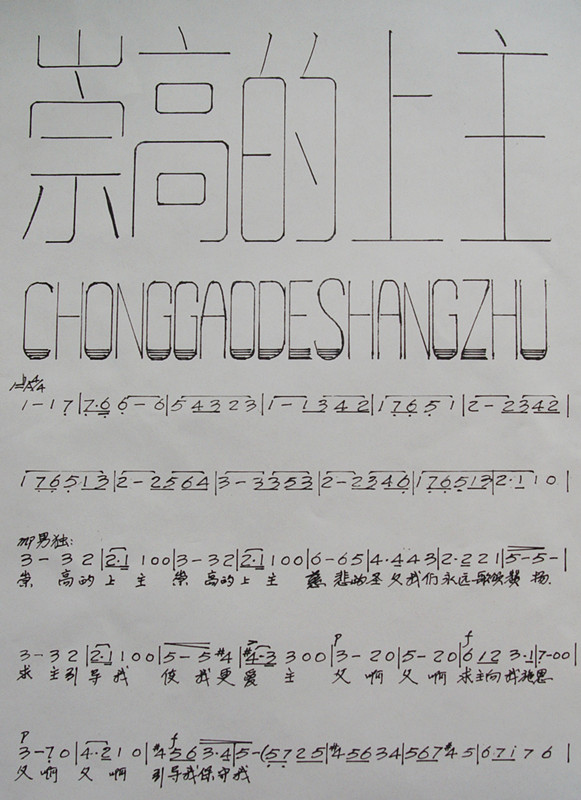 崇高的上主
CHONGGAODESHANGZHU
1-1 7|7·6 6-6|5 4 3 2 2 3|1-1 3 4 2|1 7 6 5 1|2-2 3 4 2|
1 7 6 5 1 3|2-2 5 6 4|3-3 3 5 3|2-2 3 4 6|1 7 6 5 1 3|2·1 1 0|
男独:
3-3 2|2·1 1 0 0|3-3 2|2·1 1 0 0|6-6 5|4·4 4 3|2·2 2 1|5-5-|
崇 高的上 主 崇 高的上 主 慈 悲的圣父我们永远歌颂赞 扬.
3-3 2|2·1 1 0 0|5-5 #4|#4-3 3 0 0|3-2 0|5-2 0|6 1 2 3·1|7-0 0|
求 主引导我 使 我更爱 主 父 啊 父 啊 求主向我施恩.
p f
p f
3-7 0|4·2 1 0|#4 5 6 3·4|5-(5 7 2 5|#4 5 6 3 4|5 6 7 #4 5|6 7 i 7 6|
父 啊 父 啊 引导我保守我